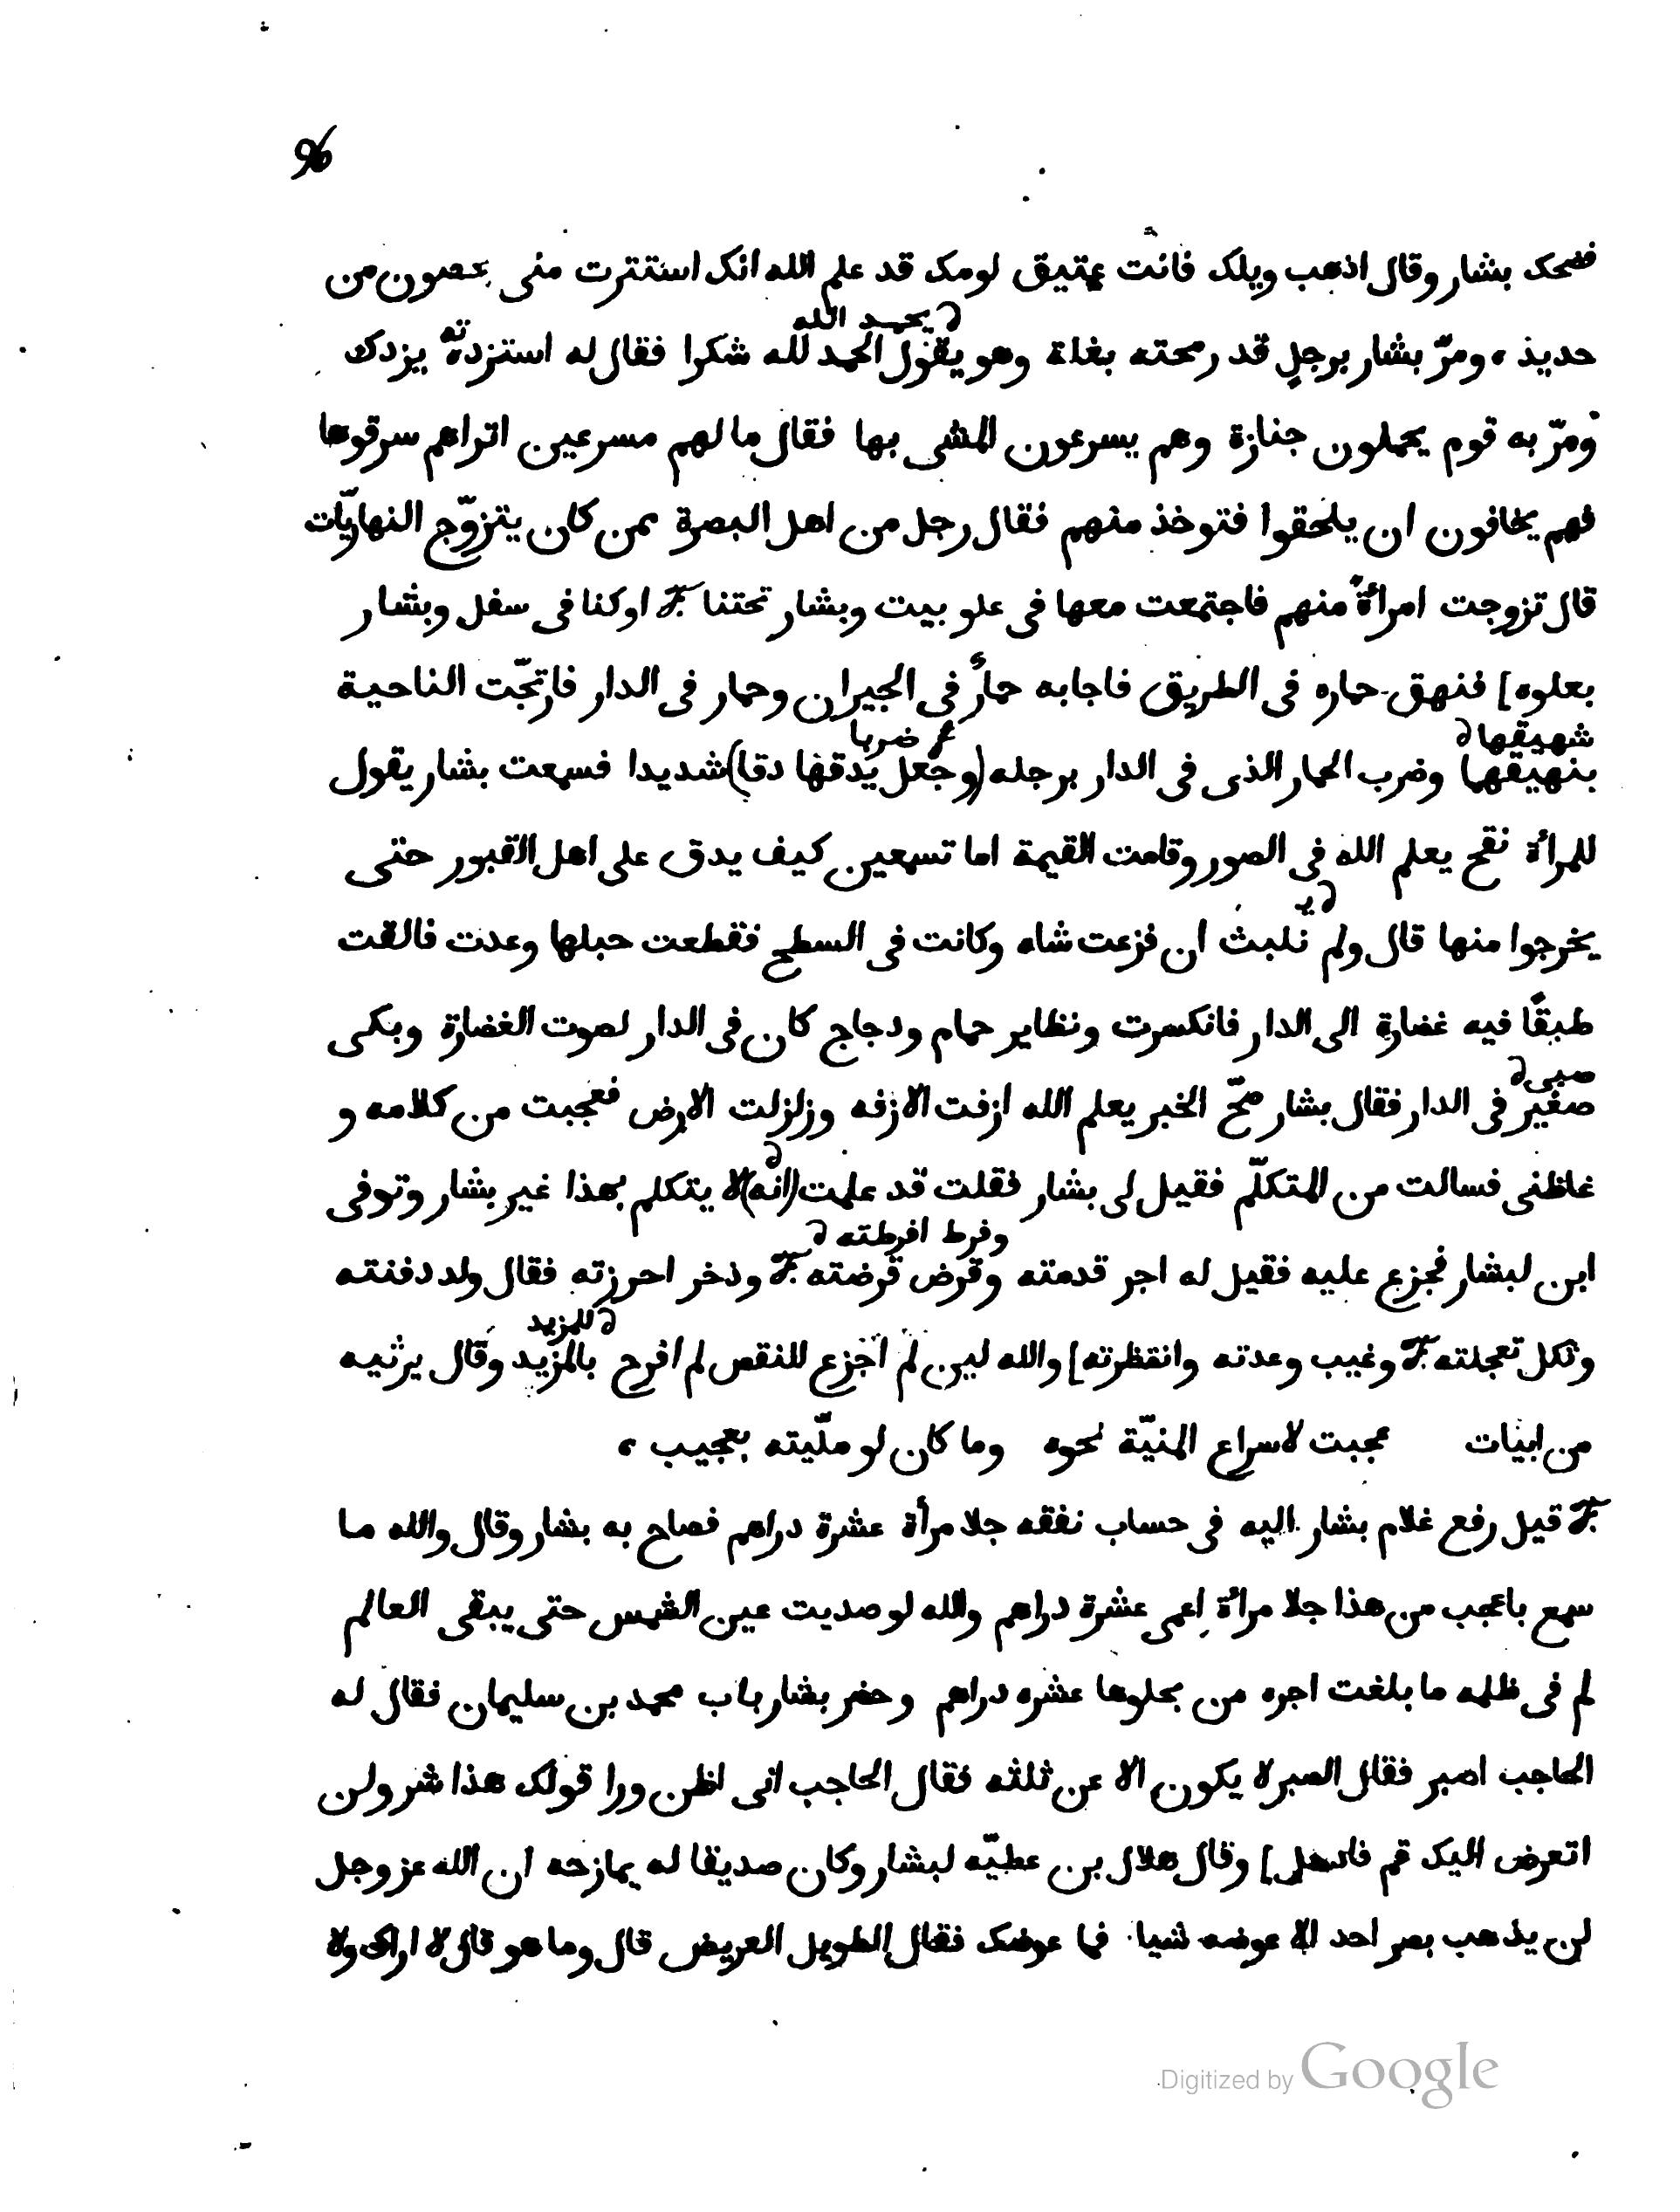 96
فضحك بشار وقال اذهب ويلك فانت عتيق لومك قد علم الله انك استترت منى بحصون من
d يحمد الله
حديد ، ومرّ بشار برجلٍ قد رمحته بغلة وهو يقول الحمد لله شكرا فقال له استزده يزدك
ومرّ به قوم يحملون جنازة وهم يسرعون المشى بها فقال ما لهم مسرعين اتراهم سرقوها
فهم يخافون ان يلحقوا فتوخذ منهم فقال رجل من اهل البصرة ممن كان يتزوّج النهاريّات
قال تزوجت امرأة منهم فاجتمعت معها فى علو بيت وبشار تحتنا اوكنا فى سفل وبشار
بعلوه] فنهق حماره فى الطريق فاجابه حمارٌ فى الجيران وحمار فى الدار فارتجّت الناحية
شهيقها d ضربا
بنهيقها وضرب الحمار الذى فى الدار برجله (وجعل يدقها دقا) شديدا فسمعت بشار يقول
للمرأة نفخ يعلم الله فى الصور وقامت القيمة اما تسمعين كيف يدق على اهل القبور حتى
d يـ
يخرجوا منها قال ولم نلبث ان فزعت شاه وكانت فى السطح فقطعت حبلها وعدت فالقت
طبقًا فيه غضارة الى الدار فانكسرت وتطاير حمام ودجاج كان فى الدار لصوت الغضارة وبكى
صبى d
صغير فى الدار فقال بشار صحّ الخبر يعلم الله ازفت الازفه وزلزلت الارض فعجبت من كلامه و
d
غاظنى فسالت من المتكلّم فقيل لى بشار فقلت قد علمت (انه) لا يتكلم بهذا غير بشار وتوفى
وفرط افرطته d
ابن لبشار فجزع عليه فقيل له اجر قدمته وقرض قرضته وذخر احرزته فقال ولد دفنته
d للمزيد
وثكل تعجلته وغيب وعدته وانتظرته] والله لين لم اجزع للنقص لم افرح بالمزيد وقال يرثيه
من ابيات عجبت لاسراع المنيّة نحوه وما كان لو ملّيته بعجيب ،
قيل رفع غلام بشار اليه فى حساب نفقه جلا مرأة عشرة دراهم فصاح به بشار وقال والله ما
سمع باعجب من هذا جلا مرأة اعمى عشرة دراهم والله لو صديت عين الشمس حتى يبقى العالم
لم فى ظلمه ما بلغت اجره من يجلوها عشره دراهم وحضر بشار باب محمد بن سليمان فقال له
الحاجب اصبر فقال الصبر لا يكون الا عن ثلثه فقال الحاجب انى اظن ورا قولك هذا شر ولن
اتعرض اليك قم فادخل] وقال هلال بن عطيّه لبشار وكان صديقا له يمازحه ان الله عز وجل
لن يذهب بصر احد الا عوضه شيا فما عوضك فقال الطويل العريض قال وما هو قال لا اراك ولا
Digitized by Google